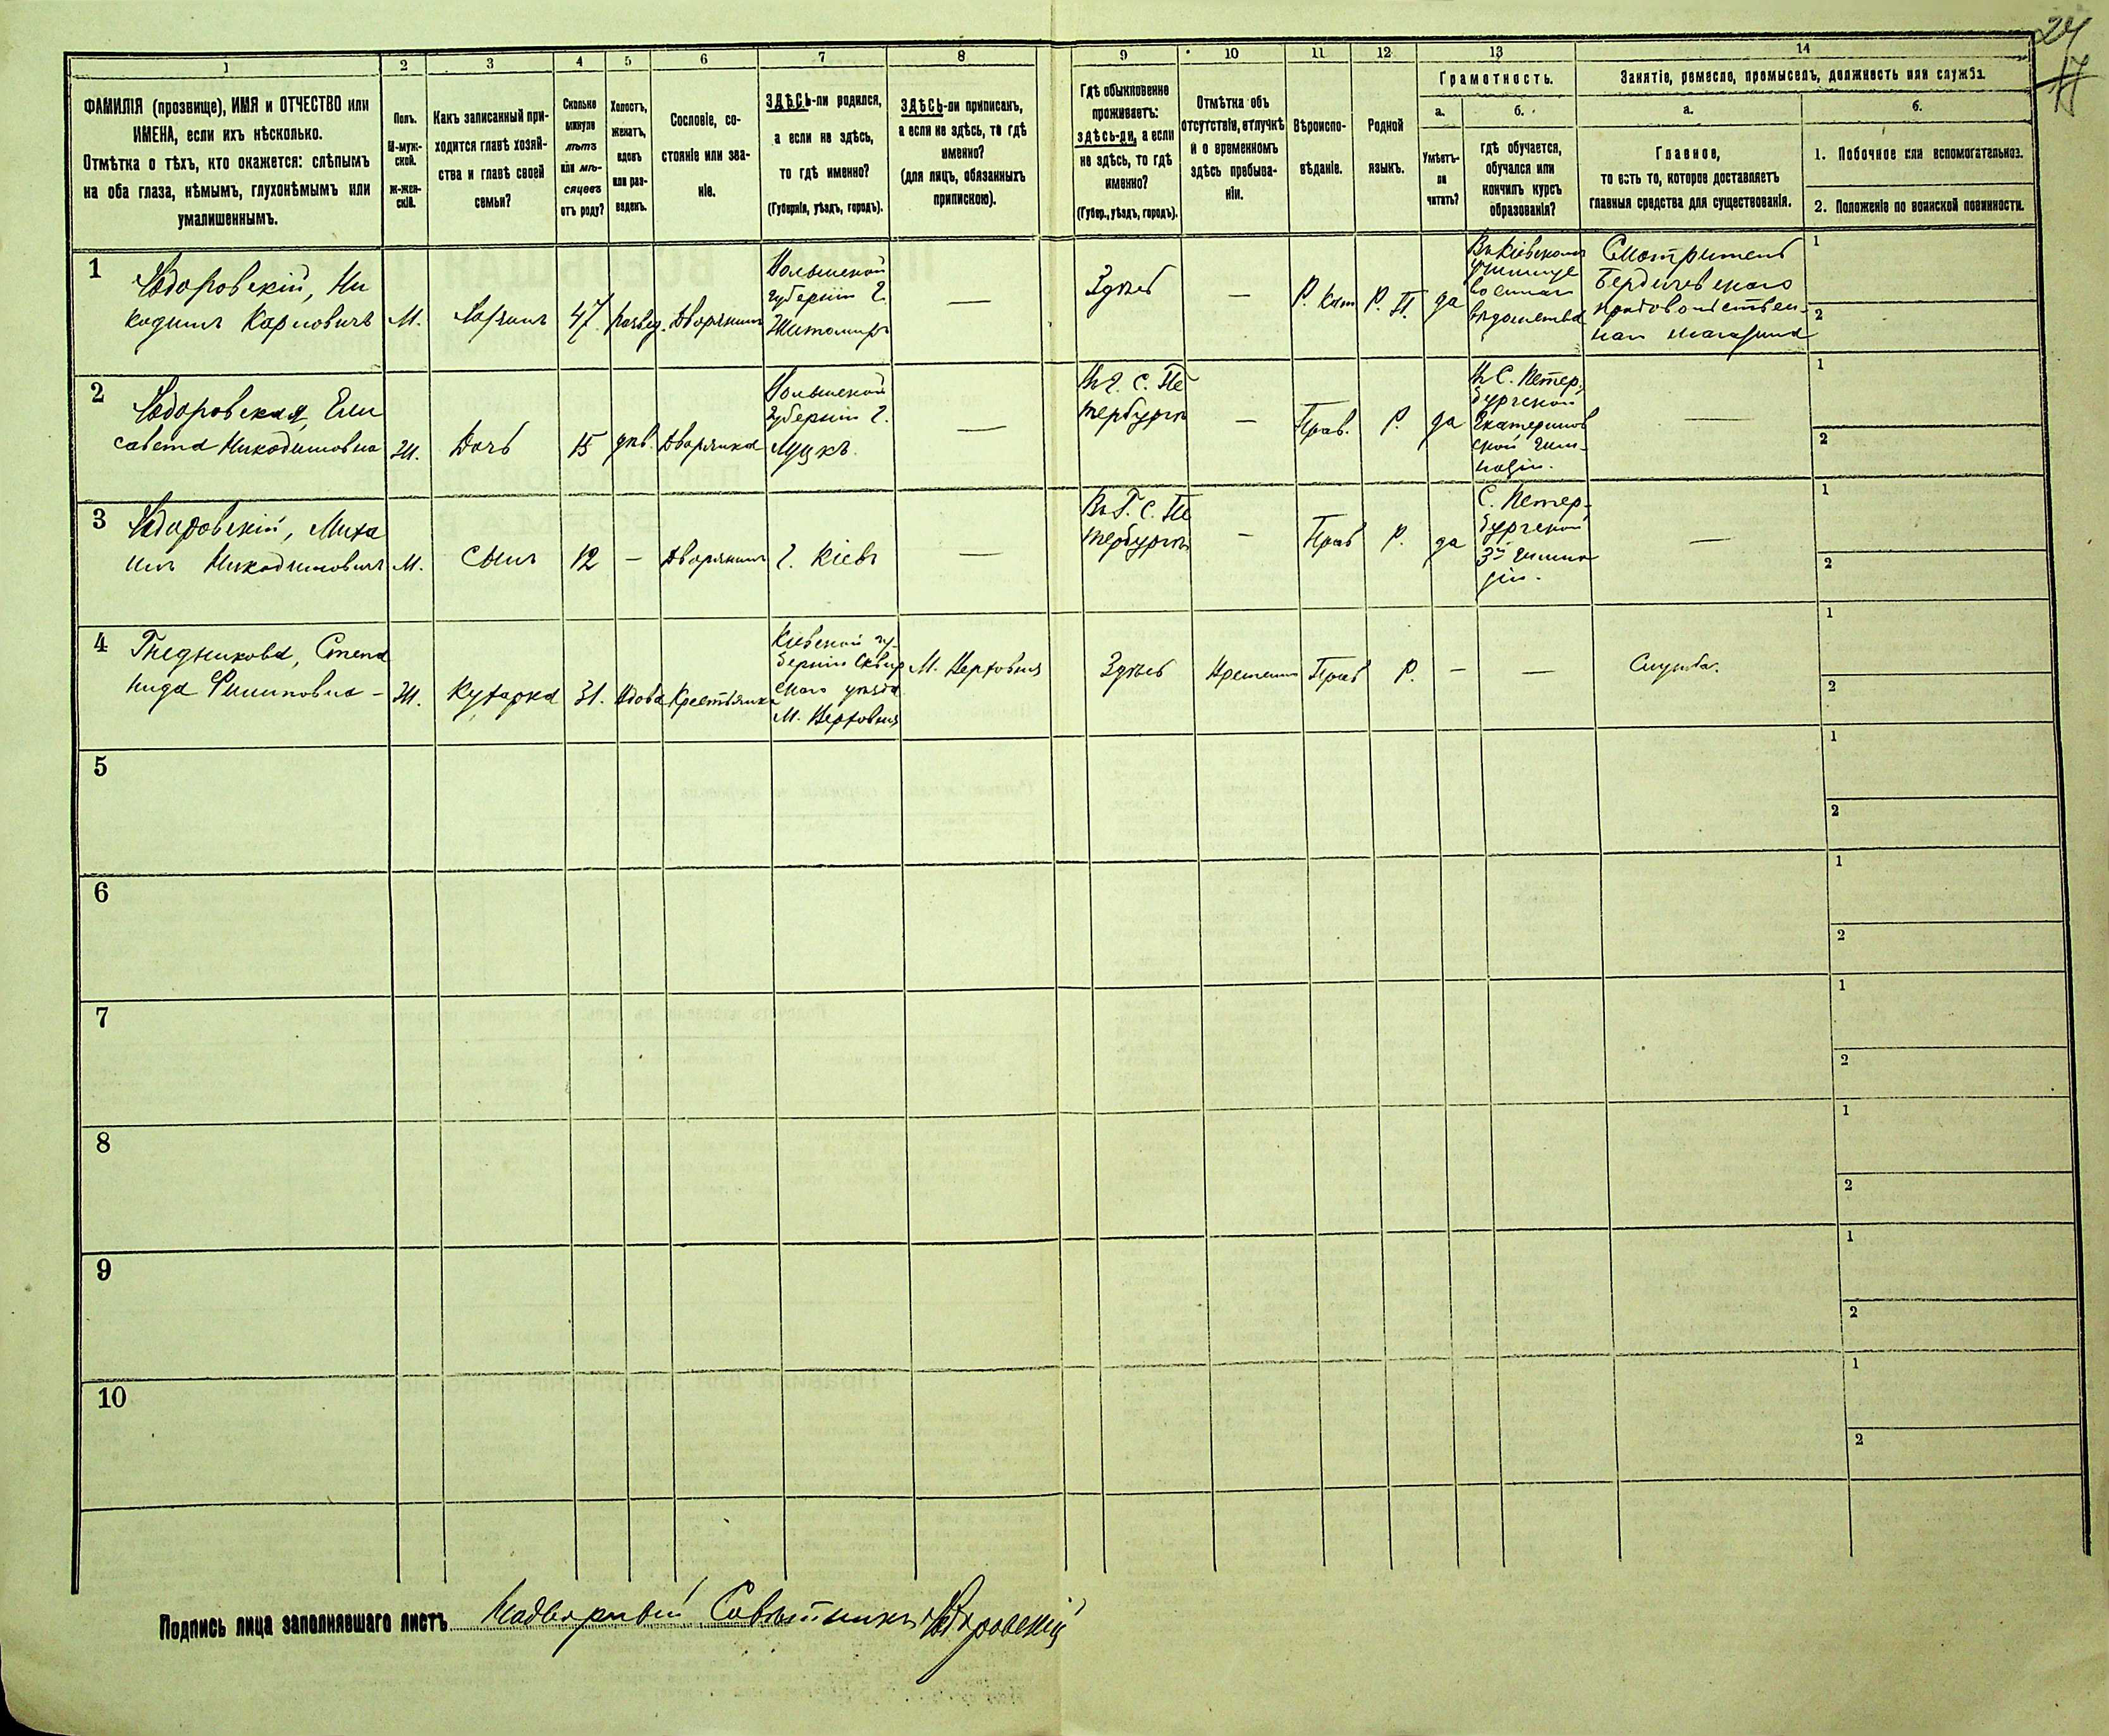 24
17
1 2 3 4 5 6 7 8 9 10 11 12 13 14
ФАМИЛІЯ (прозвище), ИМЯ и ОТЧЕСТВО или
ИМЕНА, если ихъ нѣсколько.
Отмѣтка о тѣхъ, кто окажется: слѣпымъ
на оба глаза, нѣмымъ, глухонѣмымъ или
умалишеннымъ.
Полъ.
М-муж-
ской.
ж-жен-
скій.
Какъ записанный при-
ходится главѣ хозяй-
ства и главѣ своей
семьи?
Сколько
минуло
лѣтъ
или мѣ-
сяцевъ
отъ роду?
Холостъ,
женатъ,
вдовъ
или раз-
веденъ.
Сословіе, со-
стояніе или зва-
ніе.
ЗДѢСЬ-ли родился,
а если не здѣсь,
то гдѣ именно?
(Губернія, уѣздъ, городъ).
ЗДѢСЬ-ли приписанъ,
а если не здѣсь, то гдѣ
именно?
(для лицъ, обязанныхъ
припискою).
Гдѣ обыкновенно
проживаетъ:
здѣсь-ли, а если
не здѣсь, то гдѣ
именно?
(Губер., уѣздъ, городъ).
Отмѣтка объ
отсутствіи, отлучкѣ
и о временномъ
здѣсь пребыва-
ніи.
Вѣроиспо-
вѣданіе.
Родной
языкъ.
Грамотность.
а.
Умѣетъ-
ли
читать?
б.
гдѣ обучается,
обучался или
кончилъ курсъ
образованія?
Занятіе, ремесло, промыселъ, должность или служба.
а.
Главное,
то есть то, которое доставляетъ
главныя средства для существованія.
б.
1. Побочное или вспомогательное.
2. Положеніе по воинской повинности.
1
Ни
кодимъ Карловичъ
М.
Хозяинъ
47
развед.
Дворянинъ
Волынской
губерніи г.
Житоміръ
—
Здѣсь
—
Р. Кат
Р. П.
да
Въ Кіевскомъ
училище
военнаго
вѣдомства
Смотритель
Бердичевскаго
продовольствен-
наго магазина
1
2
2
Ели
савета Никодимовна
Ж.
Дочь
15
дѣв.
Дворянка
Волынской
губерніи г.
Луцкъ.
—
Въ г. С. Пе
тербургѣ
—
Прав.
Р.
да
въ С. Петер-
бургской
Екатеринов
ской гим-
назіи.
—
1
2
3
Миха
илъ Никодимовичъ
М.
Сынъ
12
—
Дворянинъ
г. Кіевъ
—
Въ Г. С. Пе
тербургѣ
—
Прав
Р.
да
С. Петер-
бургской
3й гимна
зіи.
—
1
2
4
Гнедникова, Степа
нида Филиповна -
Ж.
Кухарка
31.
Вдова
Крестьянка
Кіевской гу-
берніи Сквир
скаго уѣзда
М. Верховня
М. Верховня
Здѣсь
Временно
Прав
Р.
—
—
Служба.
1
2
5
1
2
6
1
2
7
1
2
8
1
2
9
1
2
10
1
2
Подпись лица заполнявшаго листъ Надворный Совѣтникъ